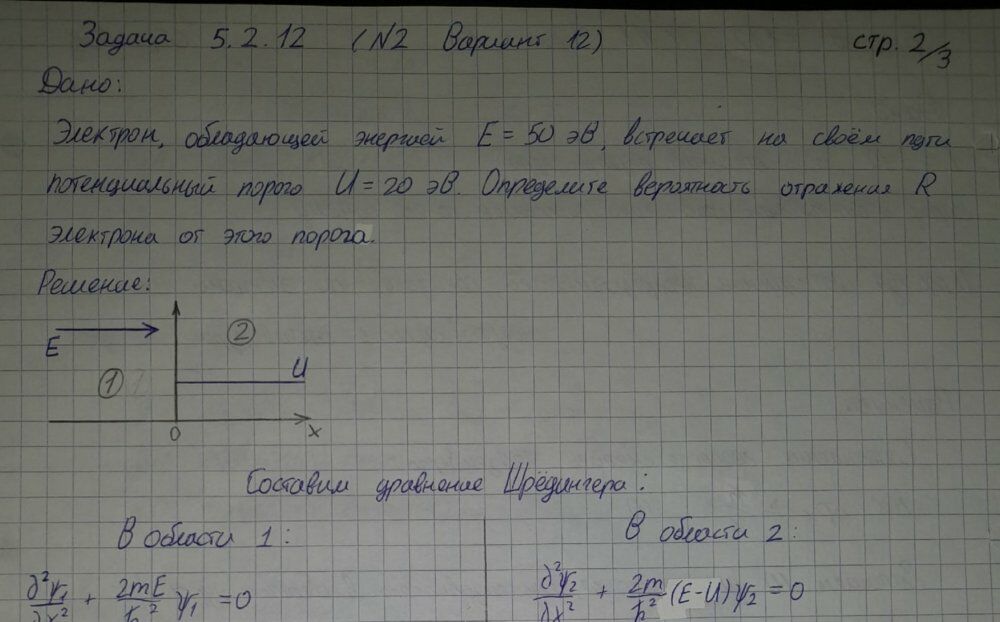 Задача 5.2.12 (N2 Вариант 12) стр. 2/3
Дано:
Электрон, обладающей энергией E = 50 эВ, встречает на своём пути
потенциальный порого U = 20 эВ. Определите вероятность отражения R
электрона от этого порога.
Решение:
E
①
②
U
0
x
Составим уравнение Шрёдингера:
В области 1:
В области 2:
∂²ψ₁/∂x² + 2mE/ħ² ψ₁ = 0
∂²ψ₂/∂x² + 2m/ħ² (E-U)ψ₂ = 0